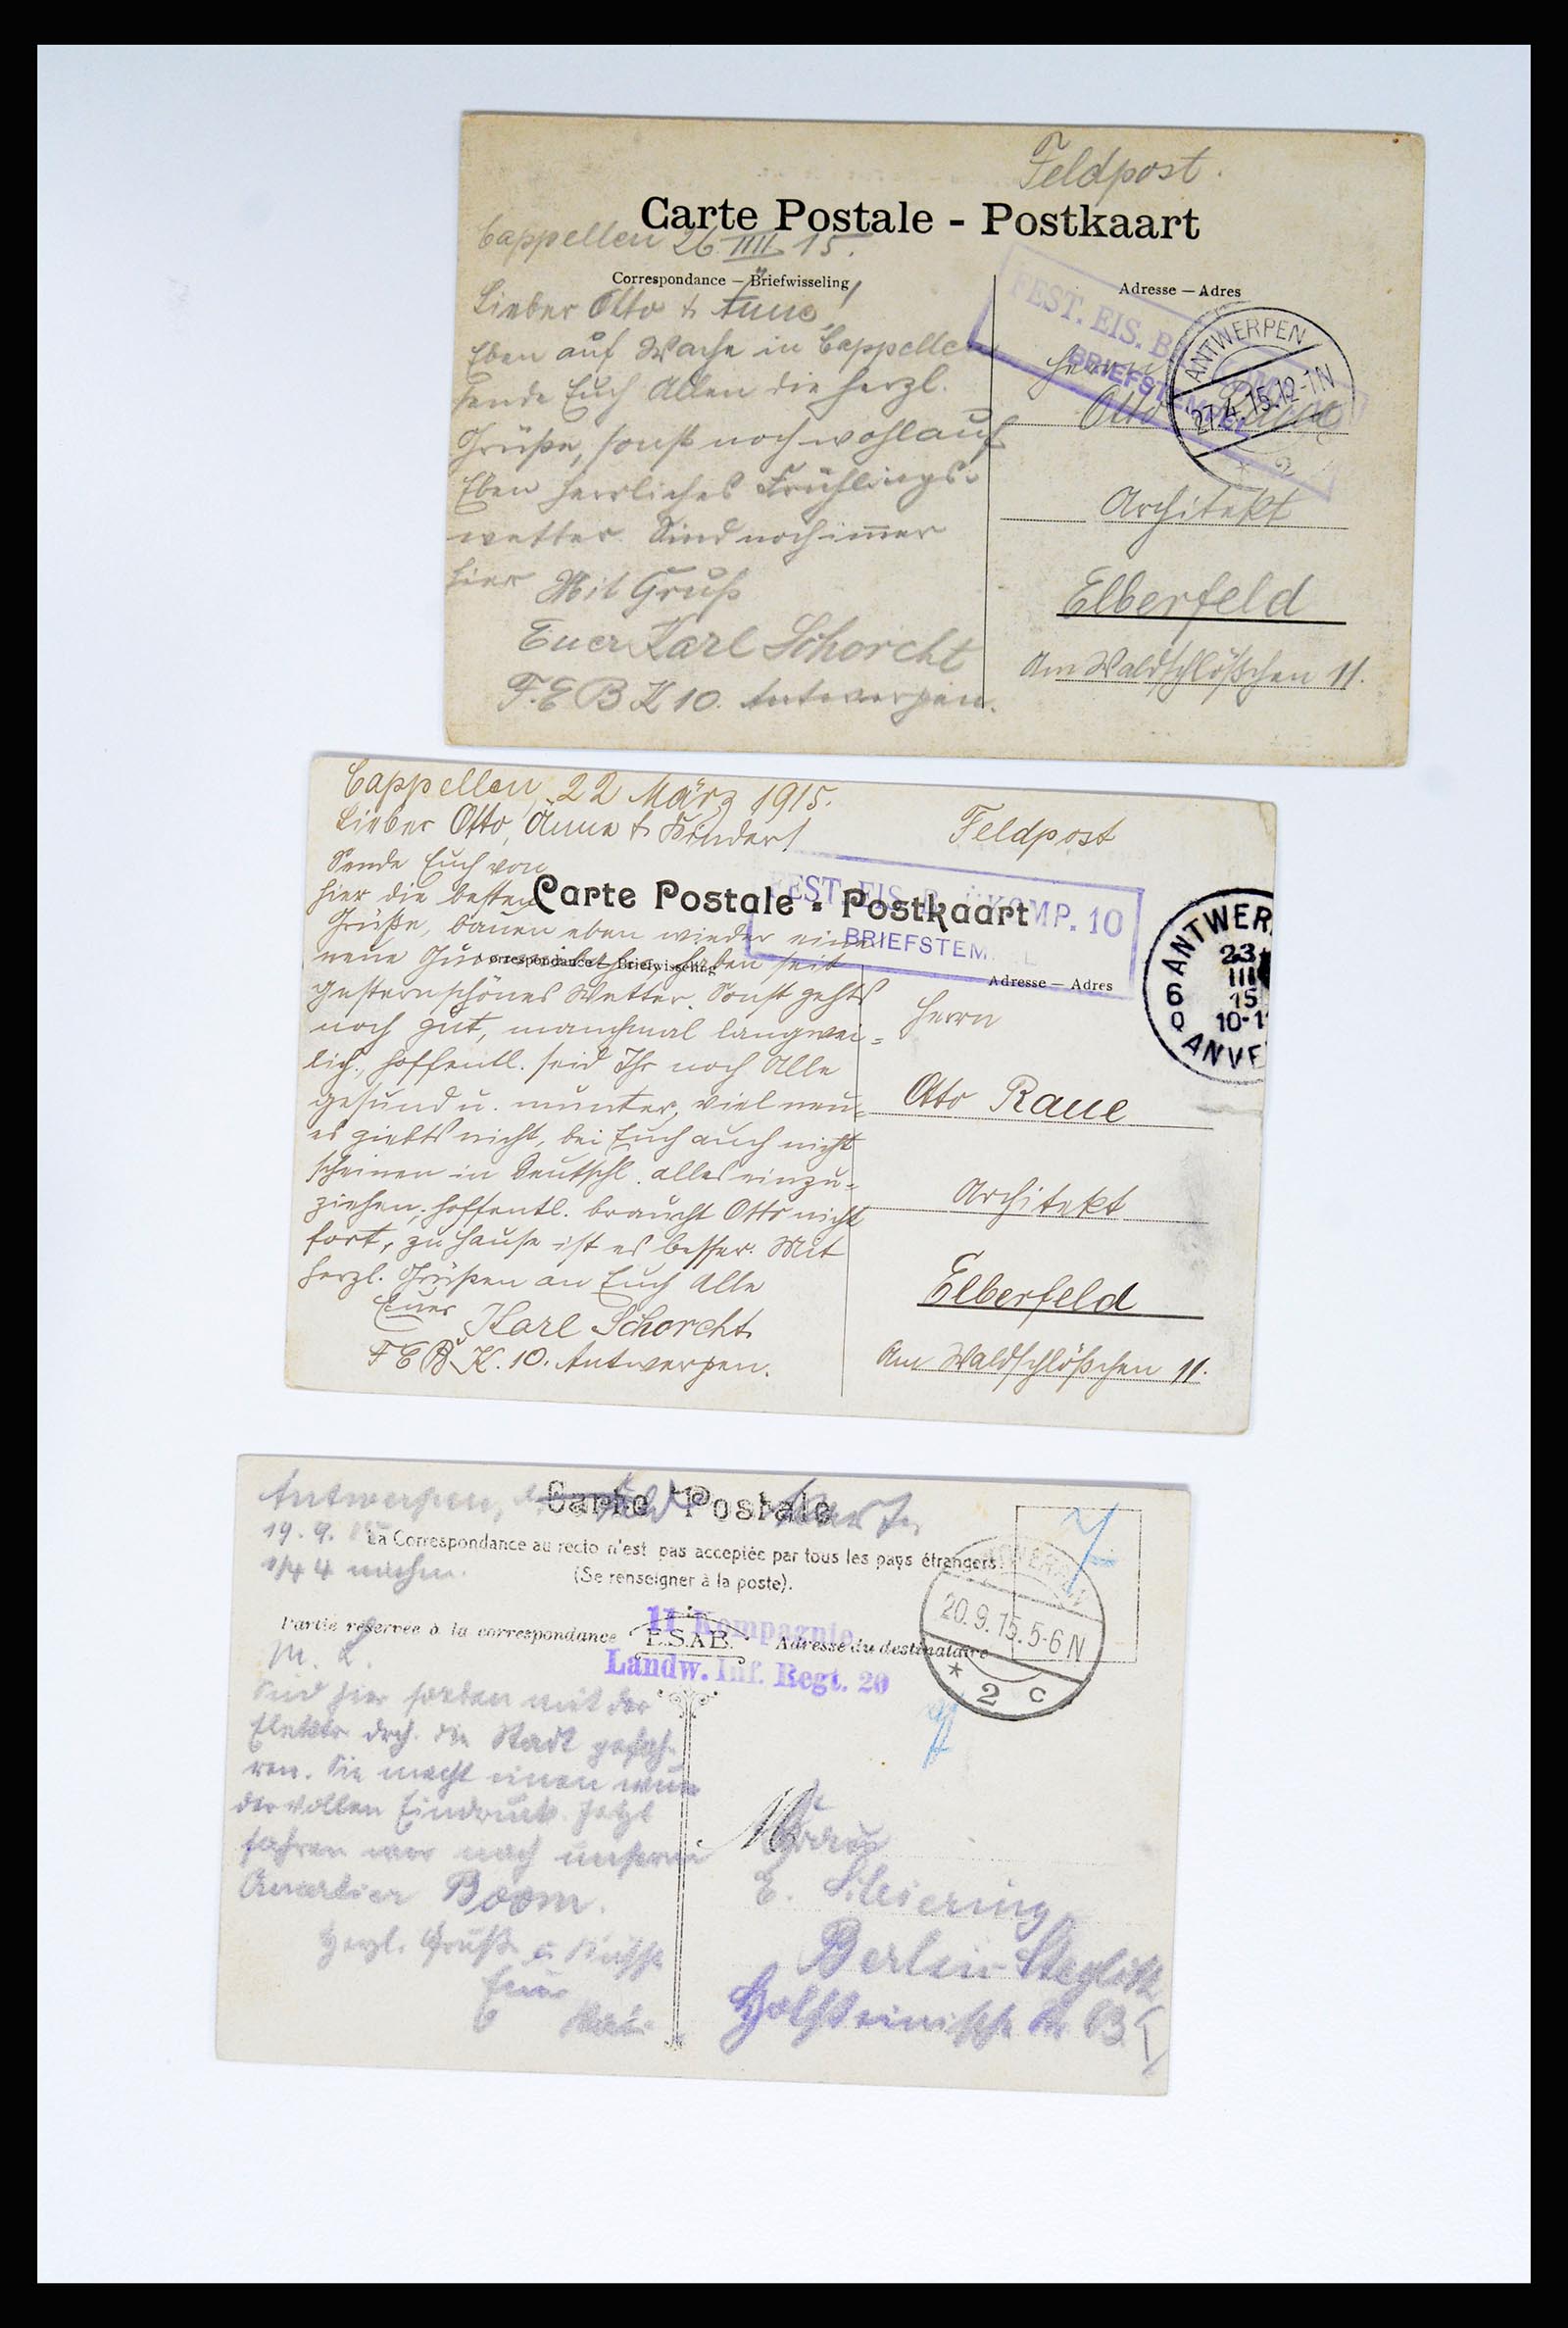 Feldpost.
Carte Postale - Postkaart
Cappellen 26. IIII. 15.
Correspondance — Briefwisseling
Adresse — Adres
Lieber Otto & Änne!
Eben auf Wache in Cappellen
sende Euch Allen die herzl.
Grüße, sonst noch wohlauf
Eben herrliches Frühlings-
wetter. Sind noch immer
hier Mit Gruß
Euer Karl Schorcht
F. E B K 10. Antwerpen.
FEST. EIS. B
BRIEFSTEMPEL
ANTWERPEN
27.4.15.12-1N
* 2
Herrn
Otto Raue
Architekt
Elberfeld
Am Waldschlößchen 11.
Cappellen, 22 März 1915.
Lieber Otto, Änne & Kinder!
Feldpost
Sende Euch von
hier die besten
Carte Postale - Postkaart
Grüße, bauen eben wieder eine
neue haben seit
orrespondance — Briefwisseling
gestern schönes Wetter. Sonst gehts
noch gut, manchmal langwei-
lich, hoffentl. seid Ihr noch Alle
gesund u. munter, viel neu-
es giebts nicht, bei Euch auch nicht
scheinen in Deutschl. alles einzu-
ziehen, hoffentl. braucht Otto nicht
fort, zu Hause ist es besser. Mit
herzl. Grüßen an Euch Alle
Euer Karl Schorcht
F E B K. 10. Antwerpen.
FEST. EIS. B KOMP. 10
BRIEFSTEM L
Adresse — Adres
ANTWER
23
III
15
10-1
6
ANVE
Herrn
Otto Raue
Architekt
Elberfeld
Am Waldschlößchen 11.
Antwerpen, d.
Carte Postale
19. 9.
La Correspondance au recto n'est pas acceptée par tous les pays étrangers
1/4 4 nachm.
(Se renseigner à la poste).
Partie réservée à la correspondance
E.S.AB.
Adresse du destinataire
11 Kompagnie
Landw. Inf. Regt. 20
20.9.15.5-6N
* 2 C
M. L.
Sind hier soeben mit der
Elektr. drch. die Stadt gefah-
ren. Sie macht einen wun
dervollen Eindruck. Jetzt
fahren wir nach unserm
Quartier Boom.
Herzl. Gruß u. Küsse
Euer
Frau
E.
Berlin-Steglitz
Holsteinische Str.